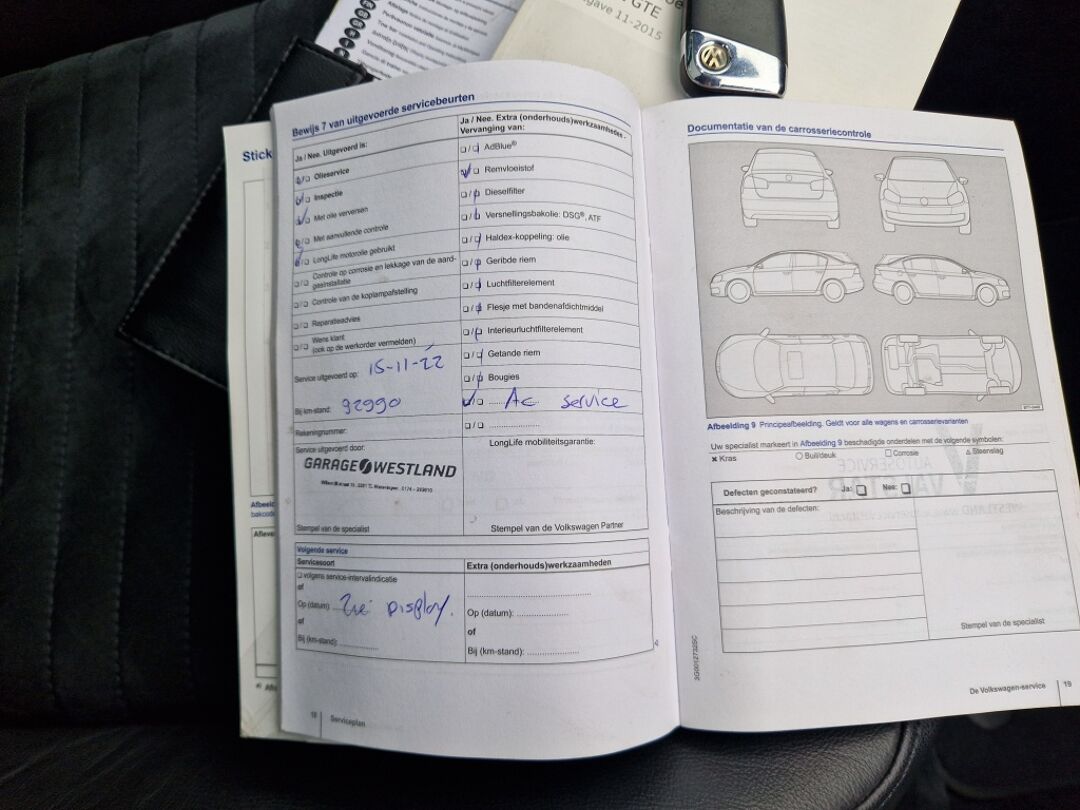 GTE
gave 11-2015
Stick
Bewijs 7 van uitgevoerde servicebeurten
Ja / Nee. Uitgevoerd is:
Olieservice
Inspectie
Met olie verversen
Met aanvullende controle
LongLife motorolie gebruikt
Controle op corrosie en lekkage van de aard-
gasinstallatie
Controle van de koplampafstelling
Reparatieadvies
Wens klant
(ook op de werkorder vermelden)
Service uitgevoerd op: 15-11-22
Bij km-stand: 92990
Rekeningnummer:
Service uitgevoerd door:
GARAGE WESTLAND
Stempel van de specialist
Ja / Nee. Extra (onderhouds)werkzaamheden -
Vervanging van:
AdBlue®
Remvloeistof
Dieselfilter
Versnellingsbakolie: DSG®, ATF
Haldex-koppeling: olie
Geribde riem
Luchtfilterelement
Flesje met bandenafdichtmiddel
Interieurluchtfilterelement
Getande riem
Bougies
Ac service
LongLife mobiliteitsgarantie:
Stempel van de Volkswagen Partner
Volgende service
Servicesoort
volgens service-intervalindicatie
of
Op (datum): Zie Display.
of
Bij (km-stand):
Extra (onderhouds)werkzaamheden
Op (datum):
of
Bij (km-stand):
18 Serviceplan
Documentatie van de carrosseriecontrole
Afbeelding 9 Principeafbeelding. Geldt voor alle wagens en carrosserievarianten
Uw specialist markeert in Afbeelding 9 beschadigde onderdelen met de volgende symbolen:
Kras Buil/deuk Corrosie Steenslag
Defecten geconstateerd? Ja: Nee:
Beschrijving van de defecten:
Stempel van de specialist
3G0012732SC
De Volkswagen-service 19